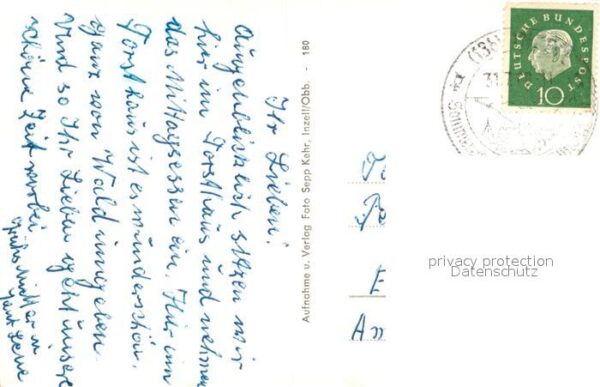 Ihr Lieben!
Augenblicklich sitzen wir
hier im Forsthaus und nehmen
das Mittagessen ein. Hier im
Forsthaus ist es wunderschön,
ganz von Wald umgeben.
Und so Ihr Lieben geht unsere
schöne Zeit vorbei
Aufnahme u. Verlag Foto Sepp Kehr, Inzell/Obb. - 180
DEUTSCHE BUNDESPOST
10
(13b)
31.
E
An
privacy protection
Datenschutz